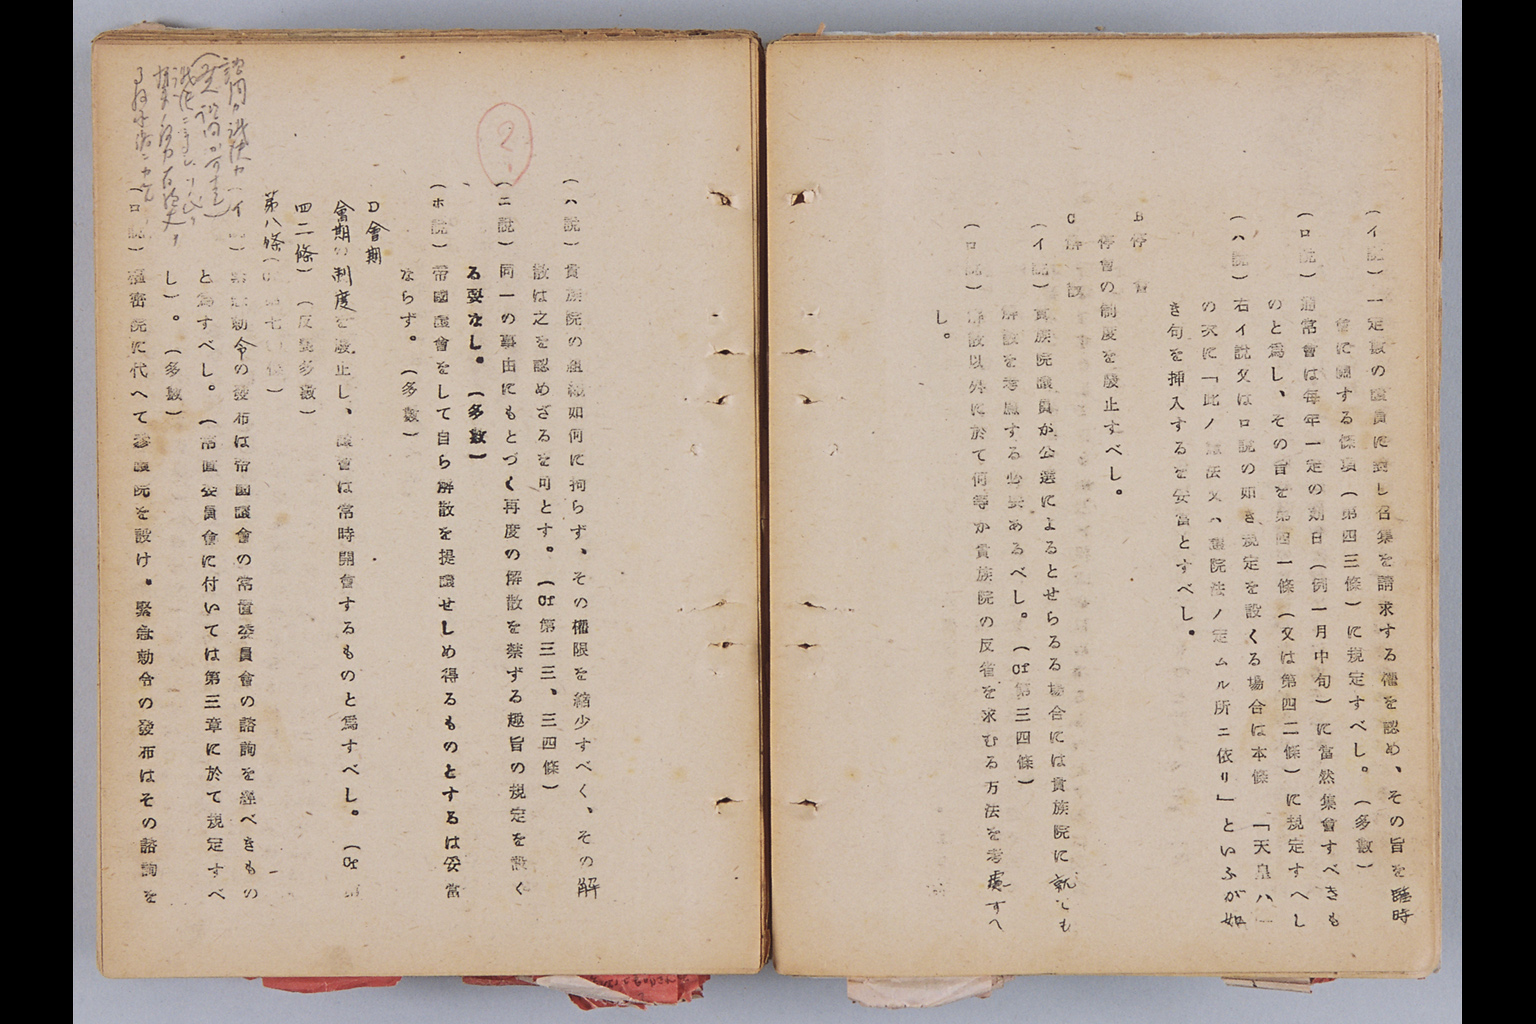 (イ説) 一定數の議員に對し召集を請求する權を認め、その旨を臨時
會に關する條項(第四三條)に規定すべし。(多數)
(ロ説) 通常會は毎年一定の期日(例一月中旬)に當然集會すべきも
のと爲し、その旨を第四一條(又は第四二條)に規定すへし
(ハ説) 右イ説又はロ説の如き規定を設くる場合は本條 「天皇ハ
の次に「此ノ憲法又ハ議院法ノ定ムル所ニ依リ」といふが如
き句を挿入するを妥當とすべし。
B 停會
停會の制度を廢止すべし。
C 解散
(イ説) 貴族院議員が公選によるとせらるる場合には貴族院に就ても
解散を考慮する必要あるべし。(cf第三四條)
(ロ説) 解散以外に於て何等か貴族院の反省を求むる方法を考慮すへ
し。
2
(ハ説) 貴族院の組織如何に拘らず、その權限を縮少すべく、その解
散は之を認めざるを可とす。(cf第三三、三四條)
(ニ説) 同一の事由にもとづく再度の解散を禁ずる趣旨の規定を設く
る要なし。(多數)
(ホ説) 帝國議會をして自ら解散を提議せしめ得るものとするは妥當
ならず。(多數)
D 會期
會期の制度を廢止し、議會は常時開會するものと爲すべし。(cf 第
四二條)(反對多數)
第八條(cf 第七〇條)
(イ説) 緊急勅令の發布は帝國議會の常置委員會の諮詢を經べきもの
と爲すべし。(常置委員會に付いては第三章に於て規定すべ
し)。(多數)
(ロ説) 樞密院に代へて參議院を設け。緊急勅令の發布はその諮詢を
諮問カ議決カ